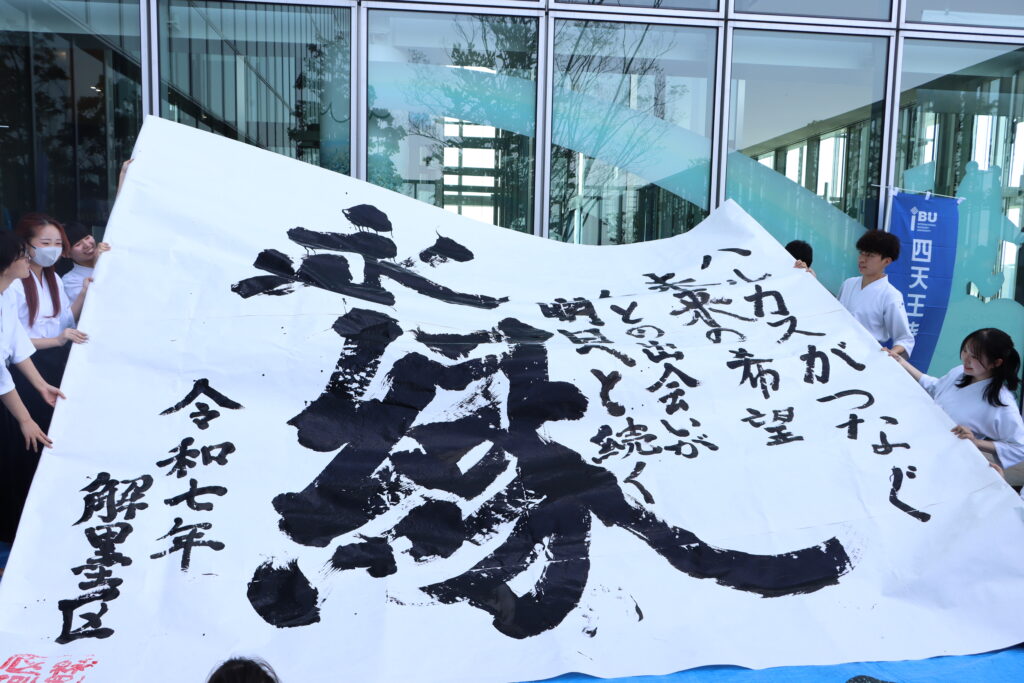 ハルカスがつなぐ
未来の希望
人との出会いが
明日へと続く
縁
令和七年
IBU
四天王